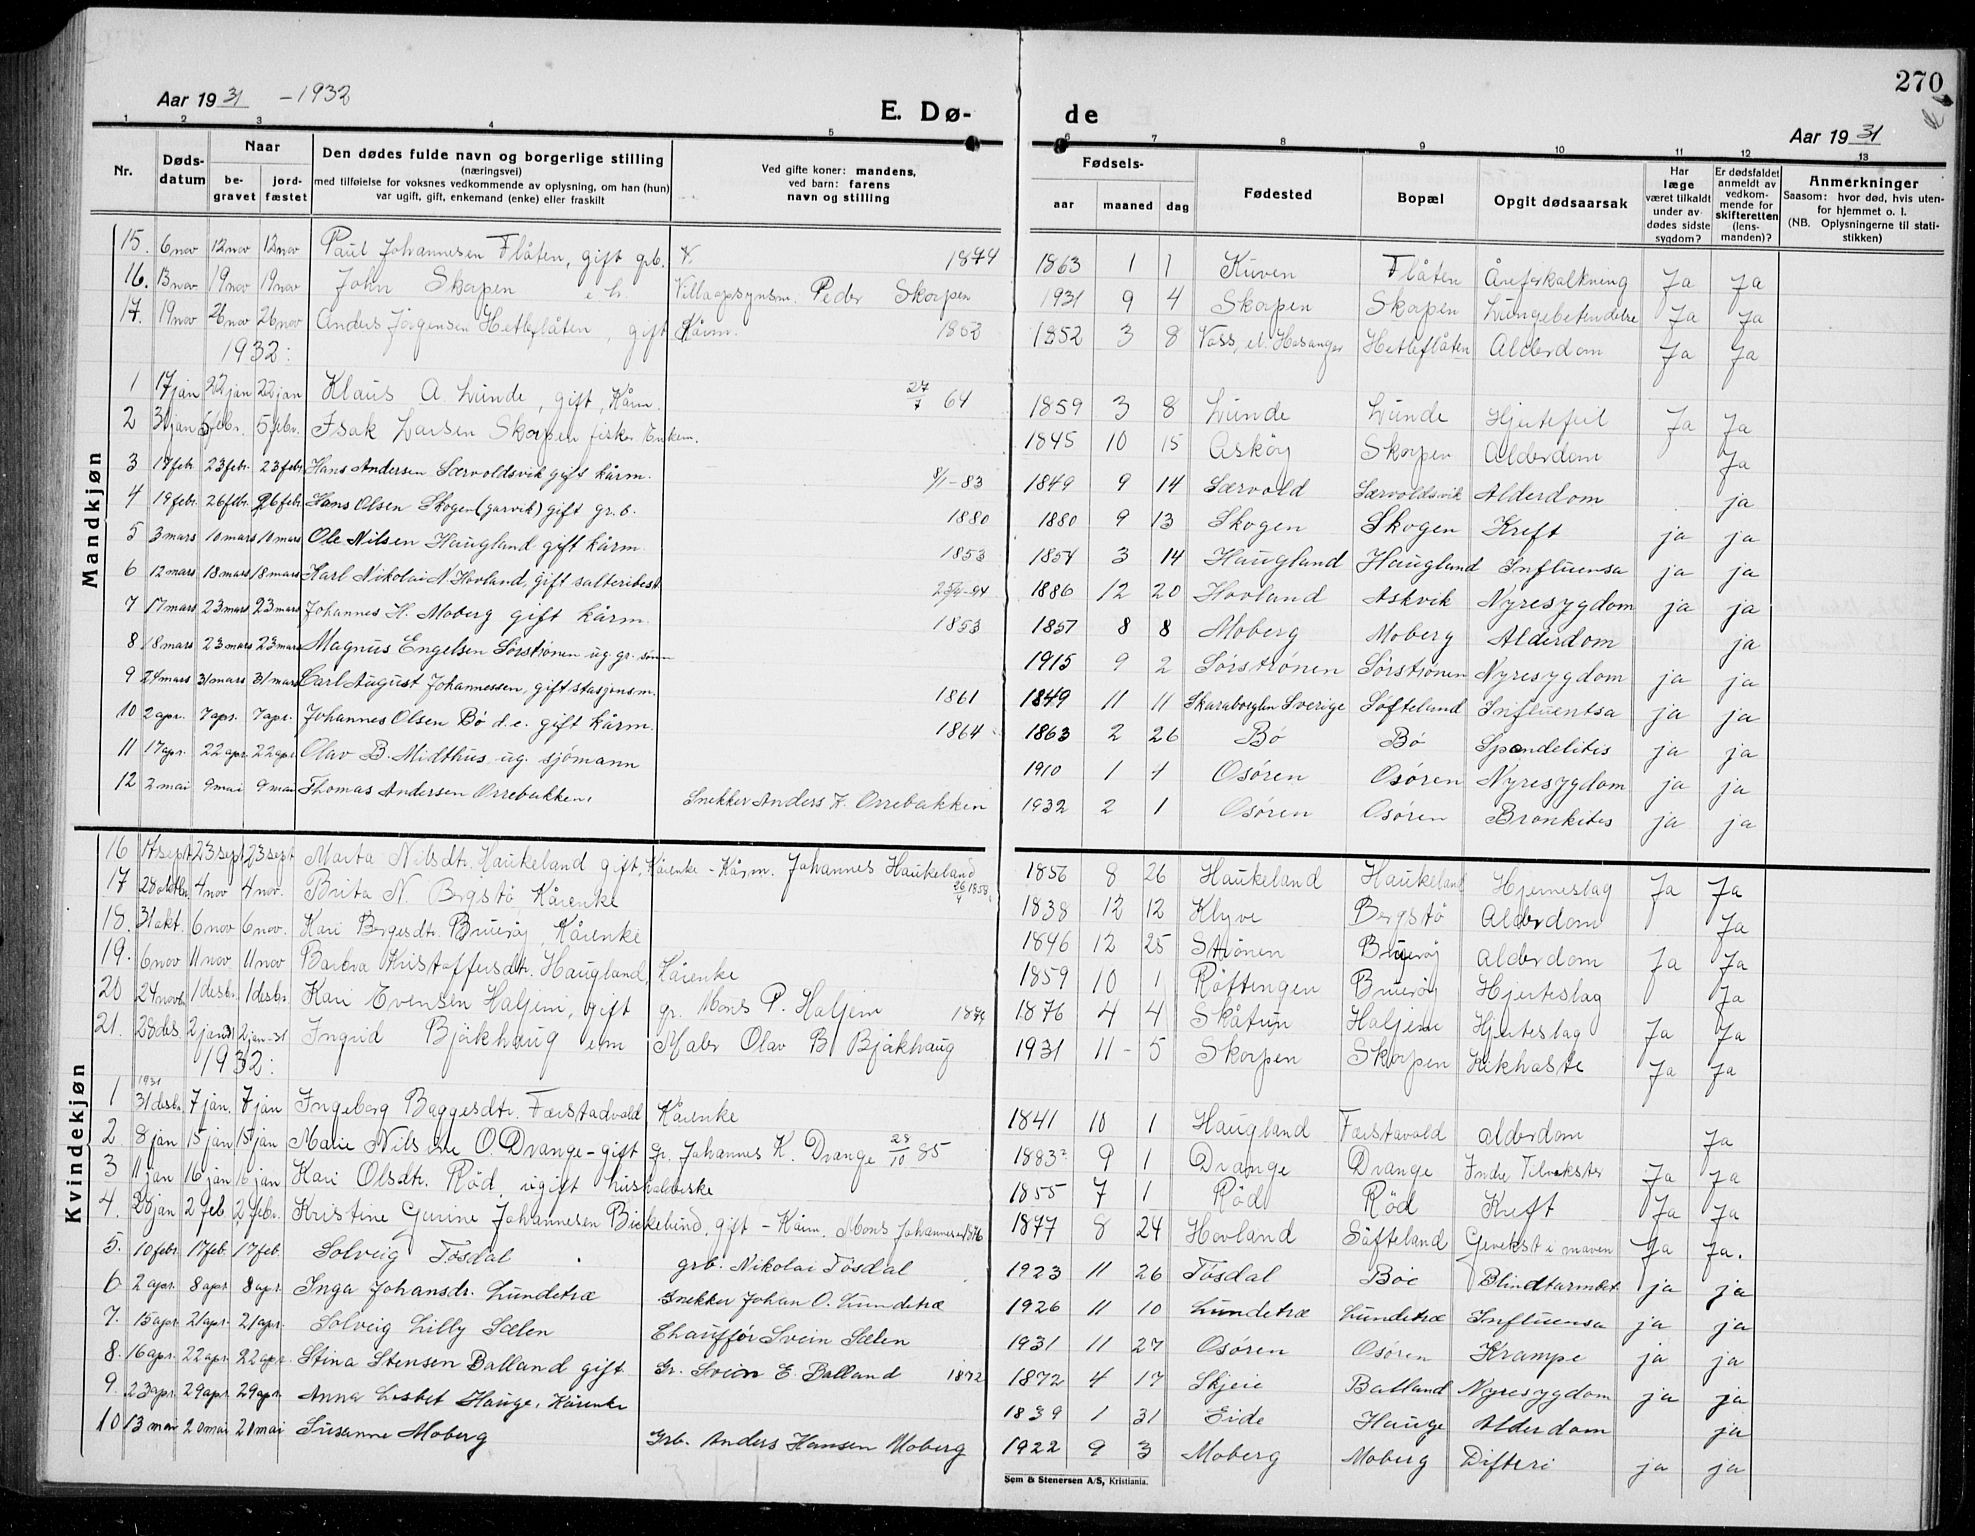 270
Aar 1931 - 1932
E. Dø-
de
Aar 1931
1 2 3 4 5 6 7 8 9 10 11 12 13
Nr. Døds-datum Naar be-gravet jord-fæstet Den dødes fulde navn og borgerlige stilling (næringsvei) med tilføielse for voksnes vedkommende av oplysning, om han (hun) var ugift, gift, enkemand (enke) eller fraskilt Ved gifte koner: mandens, ved barn: farens navn og stilling Fødsels- aar maaned dag Fødested Bopæl Opgit dødsaarsak Har læge været tilkaldt under av-dødes sidste sygdom? Er dødsfaldet anmeldt av vedkom-mende for skifteretten (lens-manden)? Anmerkninger Saasom: hvor død, hvis uten-for hjemmet o. l. (NB. Oplysningerne til stati-stikken)
Mandkjøn
15. 6 nov 12 nov 12 nov Paul Johannesen Flåten, gift grb. 1874 1863 1 1 Kuven Flåten Åreforkalkning Ja Ja
16. 13 nov 19 nov 19 nov John Skorpen Peder Skorpen 1931 9 4 Skorpen Skorpen Lungebetendelse Ja Ja
17. 19 nov 26 nov 26 nov Anders Jørgensen Hetleflåten, gift Kårm. 1852 1852 3 8 Voss, Hetleflåten Alderdom Ja Ja
1932:
1 17 jan 22 jan 22 jan Klaus A Lunde, gift, Kårm. 27/7 64 1859 3 8 Lunde Lunde Hjertefeil Ja Ja
2 31 jan 5 febr. 5 febr. Isak Larsen Skorpen fisker Enkem. 1845 10 15 Askøy Skorpen Alderdom Ja
3 17 febr. 23 febr. 23 febr Hans Andersen Særvoldsvik gift kårm. 8/1-83 1849 9 14 Særvold Særvoldsvik Alderdom ja
4 19 febr. 26 febr. 26 febr. Hans Olsen Skogen (garvik) gift gr. b. 1880 1880 9 13 Skogen Skogen Kreft ja ja
5 3 mars 10 mars 10 mars Ole Nilsen Haugland gift kårm. 1853 1854 3 14 Haugland Haugland Influensa ja ja
6 12 mars 18 mars 18 mars Karl Nikolai N Hovland, gift salteribest 1886 12 20 Hovland Askvik Nyresygdom ja ja
7 17 mars 23 mars 23 mars Johannes H. Moberg gift kårm. 1853 1857 8 8 Moberg Moberg Alderdom ja
8 18 mars 23 mars 23 mars Magnus Engelsen Sørstrønen ug. gr. sønn 1915 9 2 Sørstrønen Sørstrønen Nyresygdom ja ja
9 24 mars 31 mars 31 mars Carl August Johannessen, gift stasjonsm. 1861 1849 11 11 Skaraborglen Sverige Søfteland Influentsa ja ja
10 2 apr. 7 apr. 7 apr. Johannes Olsen Bø d.e. gift kårm. 1864 1863 2 26 Bø Bø Spondelites ja ja
11 17 apr. 22 apr. 22 apr Olav B. Midthus ug. sjömann 1910 1 1 Osøren Osøren Nyresygdom ja ja
12 2 mai 9 mai 9 mai Thomas Andersen Orrebakken, Snekker Anders K. Orrebakken 1932 2 1 Osøren Osøren Bronkites ja ja
Kvindekjøn
16 17 sept 23 sept 23 sept Marta Nilsdtr. Haukeland gift, Kårenke - Kårm. Johannes Haukeland 1856 8 26 Haukeland Haukeland Hjerneslag Ja Ja
17 28 oktbr. 4 nov 4 nov. Brita N. Bergstø Kårenke 1838 12 12 Klyve Bergstø Alderdom Ja
18. 31 okt. 6 nov 6 nov. Kari Børgesdtr. Bruerøy, Kårenke 1846 12 25 Strønen Bruerøy alderdom Ja Ja
19. 6 nov 11 nov 11 nov Barbra Kristoffersdtr. Haugland, Kårenke 1859 10 1 Røttingen Bruerøy Hjerteslag Ja
20 24 novbr. 1 desbr. 1 desbr. Kari Evensen Haljem, gift gr. Mons P. Haljem 1879 1876 4 4 Skåtun Haljem Hjerteslag Ja Ja
21. 28 des 2 jan 31 2 jan-31 Ingrid Bjåkhaug em Maler Olav B. Bjåkhaug 1931 11 - 5 Skorpen Skorpen Kikhoste Ja Ja
1932:
1 1931 31 desbr. 7 jan. 7 jan Ingeborg Baggesdtr. Færstadvold Kårenke 1841 10 1 Haugland Færstavold alderdom Ja
2 8 jan 15 jan 15 jan Marie Nilsine O. Drange - gift gr. Johannes K. Drange 28/10 85 1883? 9 1 Drange Drange Indre Tilvekster Ja Ja
3 11 jan 16 jan 16 jan Kari Olsdtr. Rød, ugift 1855 7 1 Rød Rød Kreft Ja Ja
4. 28 jan 2 feb 2 febr. Kristine Gurine Johannesen Birkelund, gift - Kårm. Mons Johannesen 1876 1877 8 24 Hovland Søfteland Gevekst i maven Ja Ja.
5. 10 febr. 17 feb. 17 feb. Solveig Tøsdal grb. Nikolai Tøsdal 1923 11 26 Tøsdal Bøe Blindtarmbet. ja ja
6 2 apr. 8 apr. 8 apr. Inga Johansdr. Lundetræ Snekker Johan O. Lundetræ 1926 11 10 Lundetræ Lundetræ Influensa ja ja
7. 15 apr. 21 apr. 21 apr. Solveig Lilly Sælen Chauffør Svein Sælen 1931 11 27 Osøren Osøren Krampe ja ja
8. 16 apr. 22 apr. 22 apr. Stina Stensen Balland gift Gr. Svein E. Balland 1872 1872 4 17 Skjeie Balland Nyresygdom ja ja
9. 23 apr. 29 apr. 29 apr. Anna Lisbet Hauge, Kårenke 1839 1 31 Eide Hauge Alderdom ja
10 13 mai 20 mai 20 mai Susanne Moberg Grb. Anders Hansen Moberg 1922 9 3 Moberg Moberg Difteri ja ja
Sem & Stenersen A/S, Kristiania.